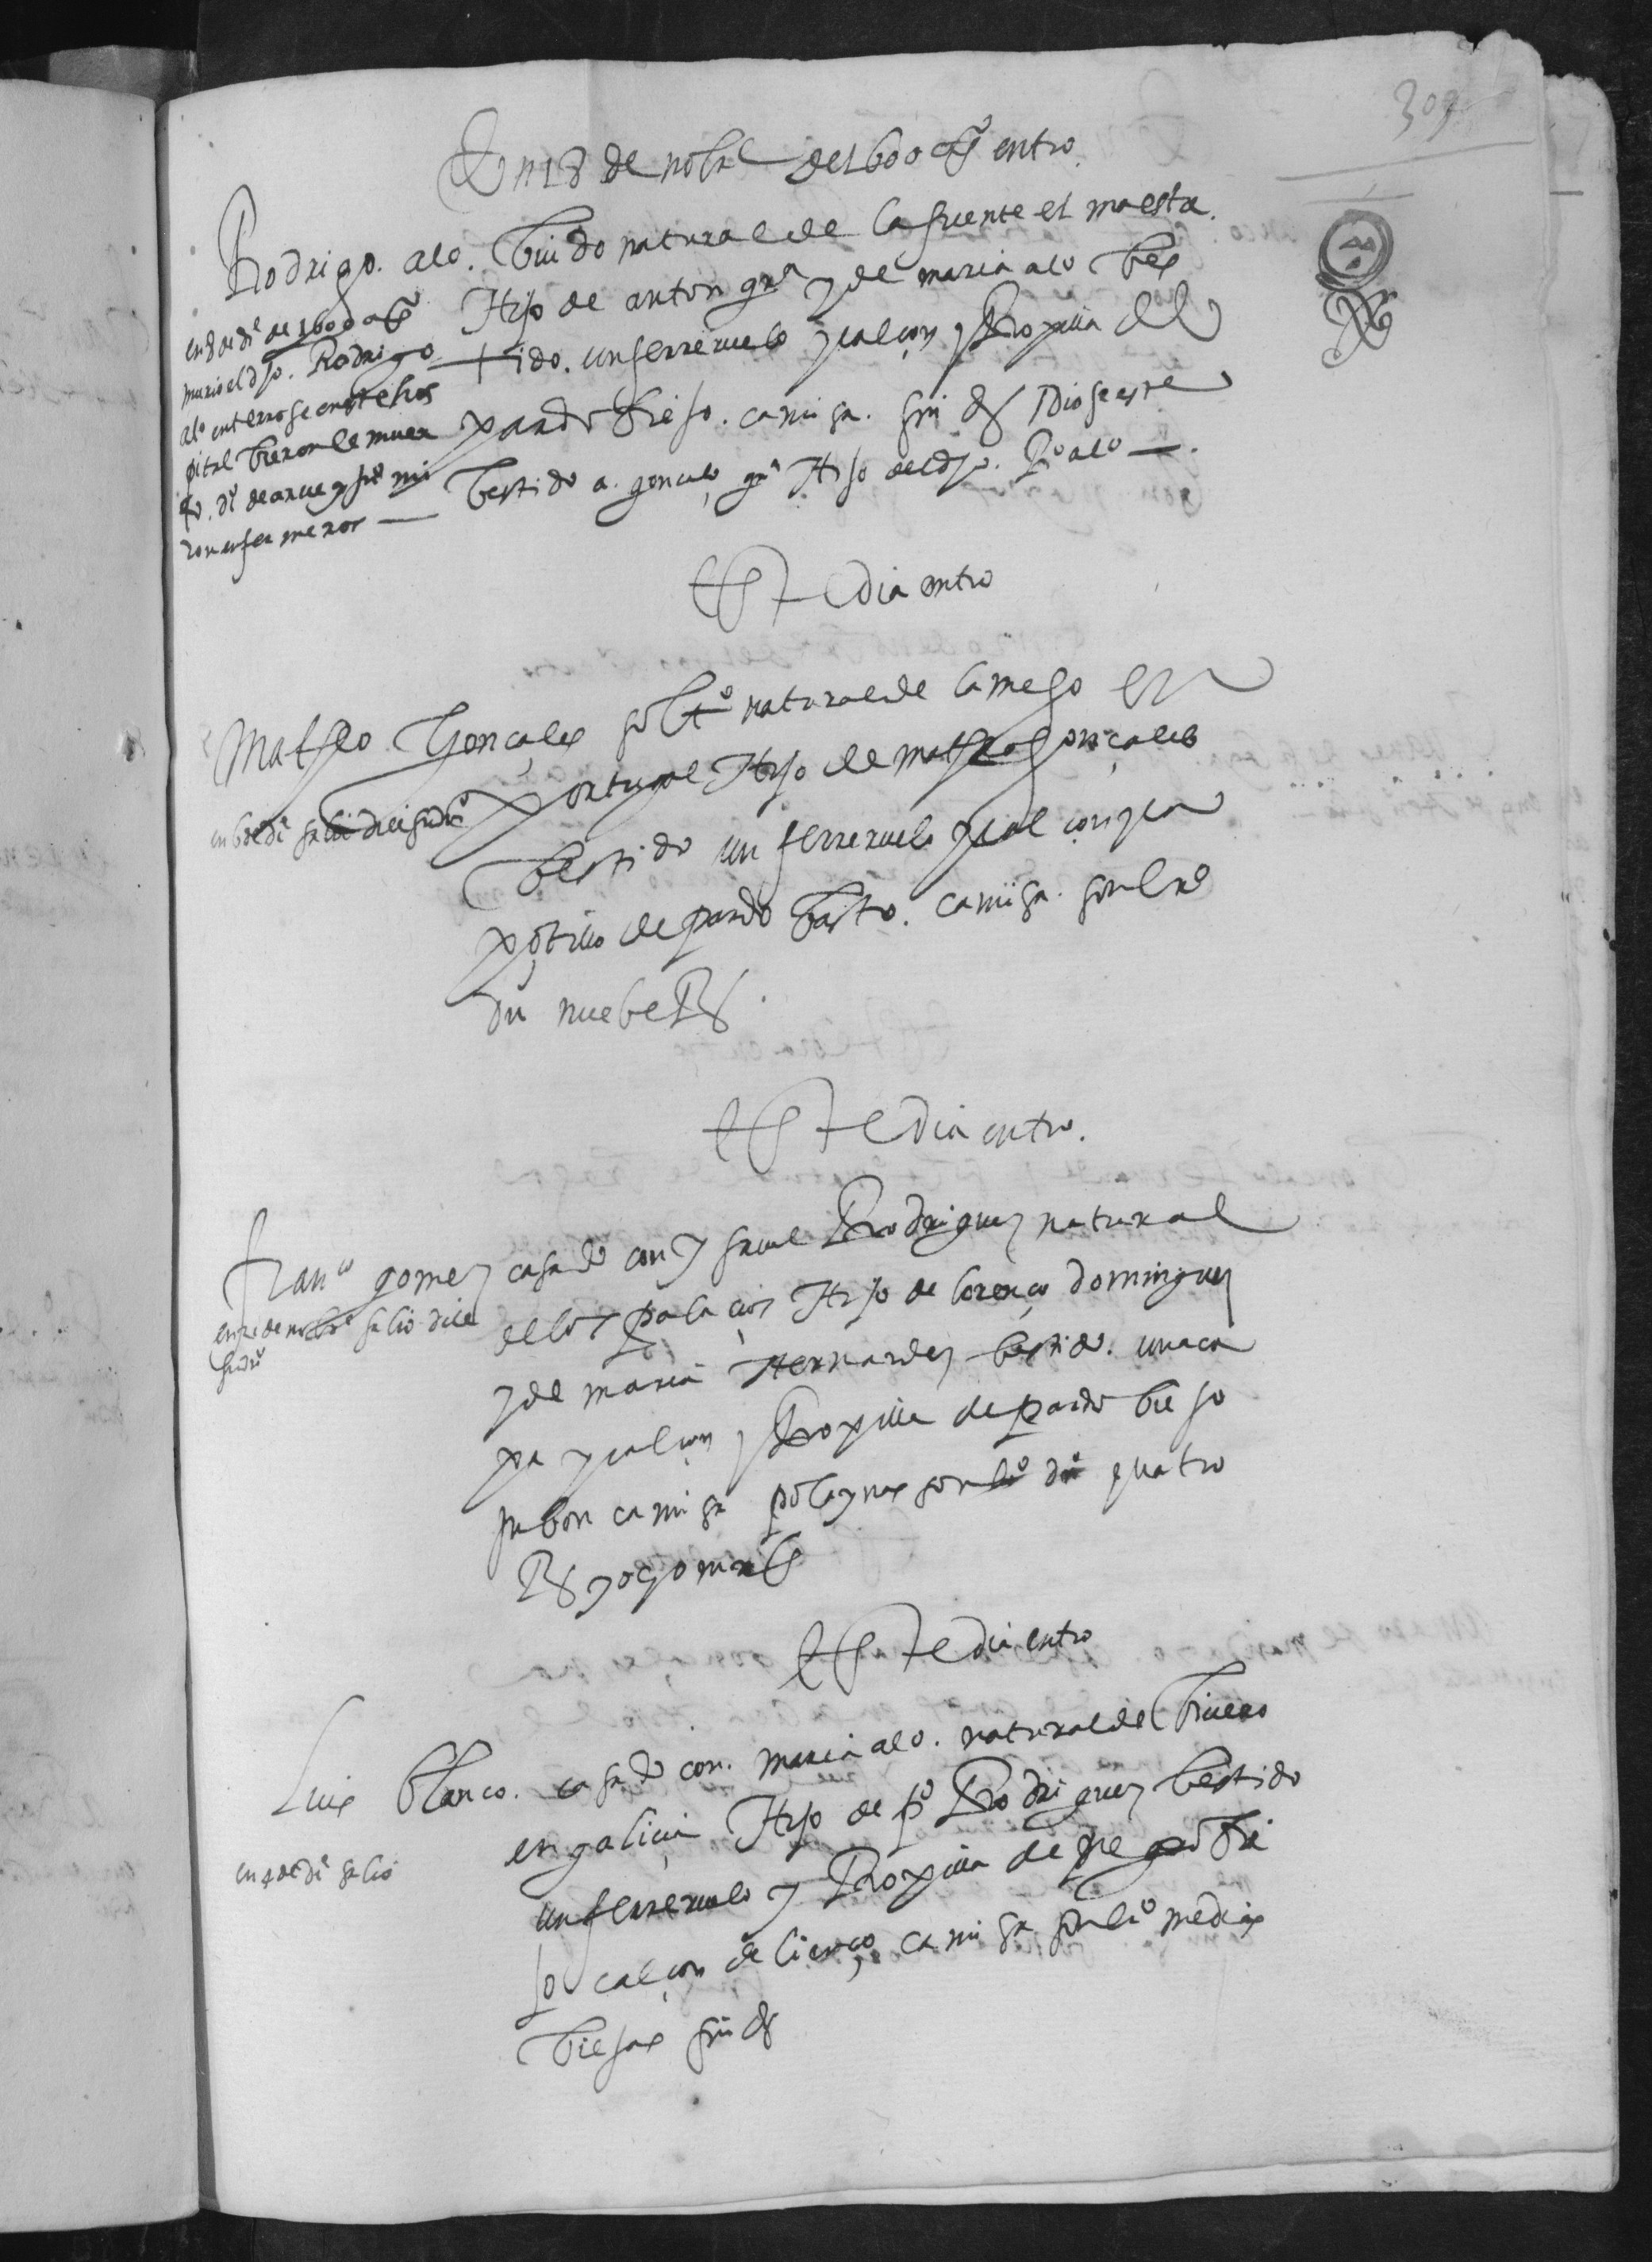 309
En 18 de nobe de 1600 as entro
Rodrigo. alo. biudo natural de la fuente el maestre.
Hijo de anton gra y de maria alo bes
tido. un ferreruelo y calçon y Ropilla del
pardo biejo. camisa. sin ds Diose este
bestido a. gonçalo gra Hijo del dho. Ro alo —.
en 8 de di de 1600 as
murio el dho. Rodrigo
alo enterrose en este hos
pital
ron enfermeros —
Este dia entro
Matheo Gonçales solto natural de lamego en
Portugal Hijo de matheo gonçales
bestido un ferreruelo y calçon y ca
potillo de pardo basto. camisa. sombro
du nuebe Rs.
en 6 de di salio
Este dia entro.
franco gomez casado con ysauel Rodriguez natural
de los palacios Hijo de lorenço dominguez
y de maria Hernandez bestido. una ca
pa y calçon y Ropilla de pardo biejo
jubon camisa polaynas sombro du quatro
Rs y ocho mrs
en de nobre salio dice
Este dia entro
Luis blanco. casado con. maria alo. natural de biuero
en galicia Hijo de po Rodriguez bestido
un ferreruelo y Ropilla de pardo bie
jo calçon de lienço camisa sombro medias
biejas sin ds
en 4 de di salio